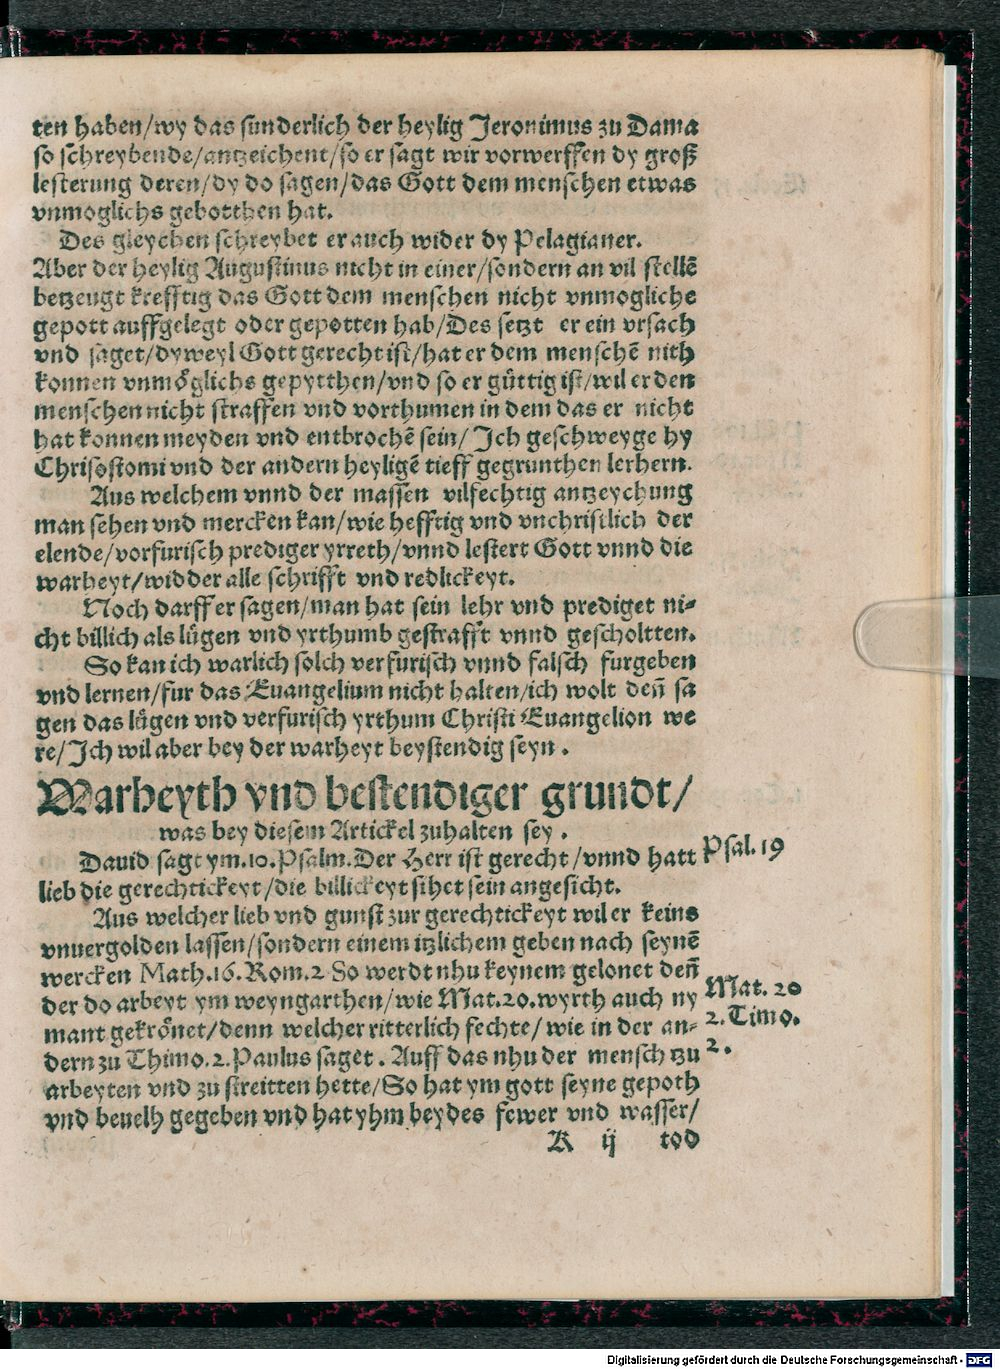 ten haben/wy das sunderlich der heylig Jeronimus zu Dama
so schreybende/antzeichent/so er sagt wir vorwerffen dy groß
lesterung deren/dy do sagen/das Gott dem menschen etwas
vnmoglichs gebotthen hat.
Des gleychen schreybet er auch wider dy Pelagianer.
Aber der heylig Augustinus nicht in einer/sondern an vil stellē
betzeugt krefftig das Gott dem menschen nicht vnmogliche
gepott auffgelegt oder gepotten hab/Des setzt er ein vrsach
vnd saget/dyweyl Gott gerecht ist/hat er dem menschē nith
konnen vnmöglichs gepytthen/vnd so er güttig ist/wil er den
menschen nicht straffen vnd vorthumen in dem das er nicht
hat konnen meyden vnd entbrochē sein/Ich geschweyge hy
Chrisostomi vnd der andern heyligē tieff gegrunthen lerhern.
Aus welchem vnnd der massen vilfechtig antzeychung
man sehen vnd mercken kan/wie hefftig vnd vnchristlich der
elende/vorfurisch prediger yrreth/vnnd lestert Gott vnnd die
warheyt/widder alle schrifft vnd redlickeyt.
Noch darff er sagen/man hat sein lehr vnd prediget ni⸗
cht billich als lügen vnd yrthumb gestrafft vnnd gescholtten.
So kan ich warlich solch verfurisch vnnd falsch furgeben
vnd lernen/fur das Euangelium nicht halten/ich wolt deñ sa
gen das lügen vnd verfurisch yrthum Christi Euangelion we
re/Ich wil aber bey der warheyt beystendig seyn.
Warheyth vnd bestendiger grundt/
was bey diesem Artickel zuhalten sey.
Dauid sagt ym.10.Psalm.Der Herr ist gerecht/vnnd hatt
Psal.19
lieb die gerechtickeyt/die billickeyt sihet sein angesicht.
Aus welcher lieb vnd gunst zur gerechtickeyt wil er keins
vnuergolden lassen/sondern einem itzlichem geben nach seynē
wercken Math.16.Rom.2 So werdt nhu keynem gelonet deñ
der do arbeyt ym weyngarthen/wie Mat.20.wyrth auch ny
Mat. 20
mant gekrönet/denn welcher ritterlich fechte/wie in der an⸗
2.Timo.
dern zu Thimo.2.Paulus saget. Auff das nhu der mensch tzu
2.
arbeyten vnd zu streitten hette/So hat ym gott seyne gepoth
vnd beuelh gegeben vnd hat yhm beydes fewer vnd wasser/
K ij tod
Digitalisierung gefördert durch die Deutsche Forschungsgemeinschaft - DFG